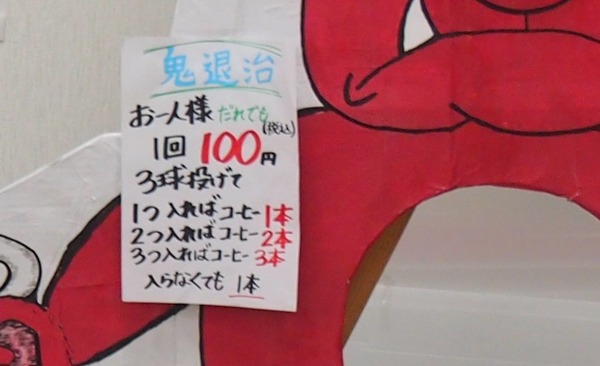 鬼退治
お一人様 だれでも
(税込)
1回 100円
3球投げて
1つ入ればコーヒー1本
2つ入ればコーヒー2本
3つ入ればコーヒー3本
入らなくても 1本